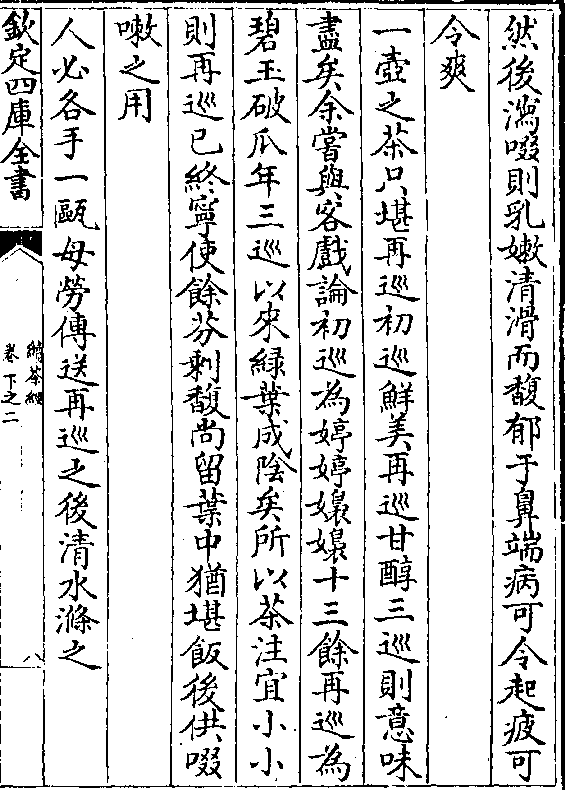 然後瀉啜則乳嫩清滑而馥郁于鼻端病可令起疲可
令爽
一壺之茶只堪再巡初巡鮮美再巡甘醇三巡則意味
盡矣余嘗與客戲論初巡為婷婷嬝嬝十三餘再巡為
碧玉破瓜年三巡以來緑葉成陰矣所以茶注宜小小
則再巡已終寧使餘芬剩馥尚留葉中猶堪飯後供啜
嗽之用
人必各手一甌毋勞傳送再巡之後清水滌之
欽定四庫全書
續茶經
卷下之二
八